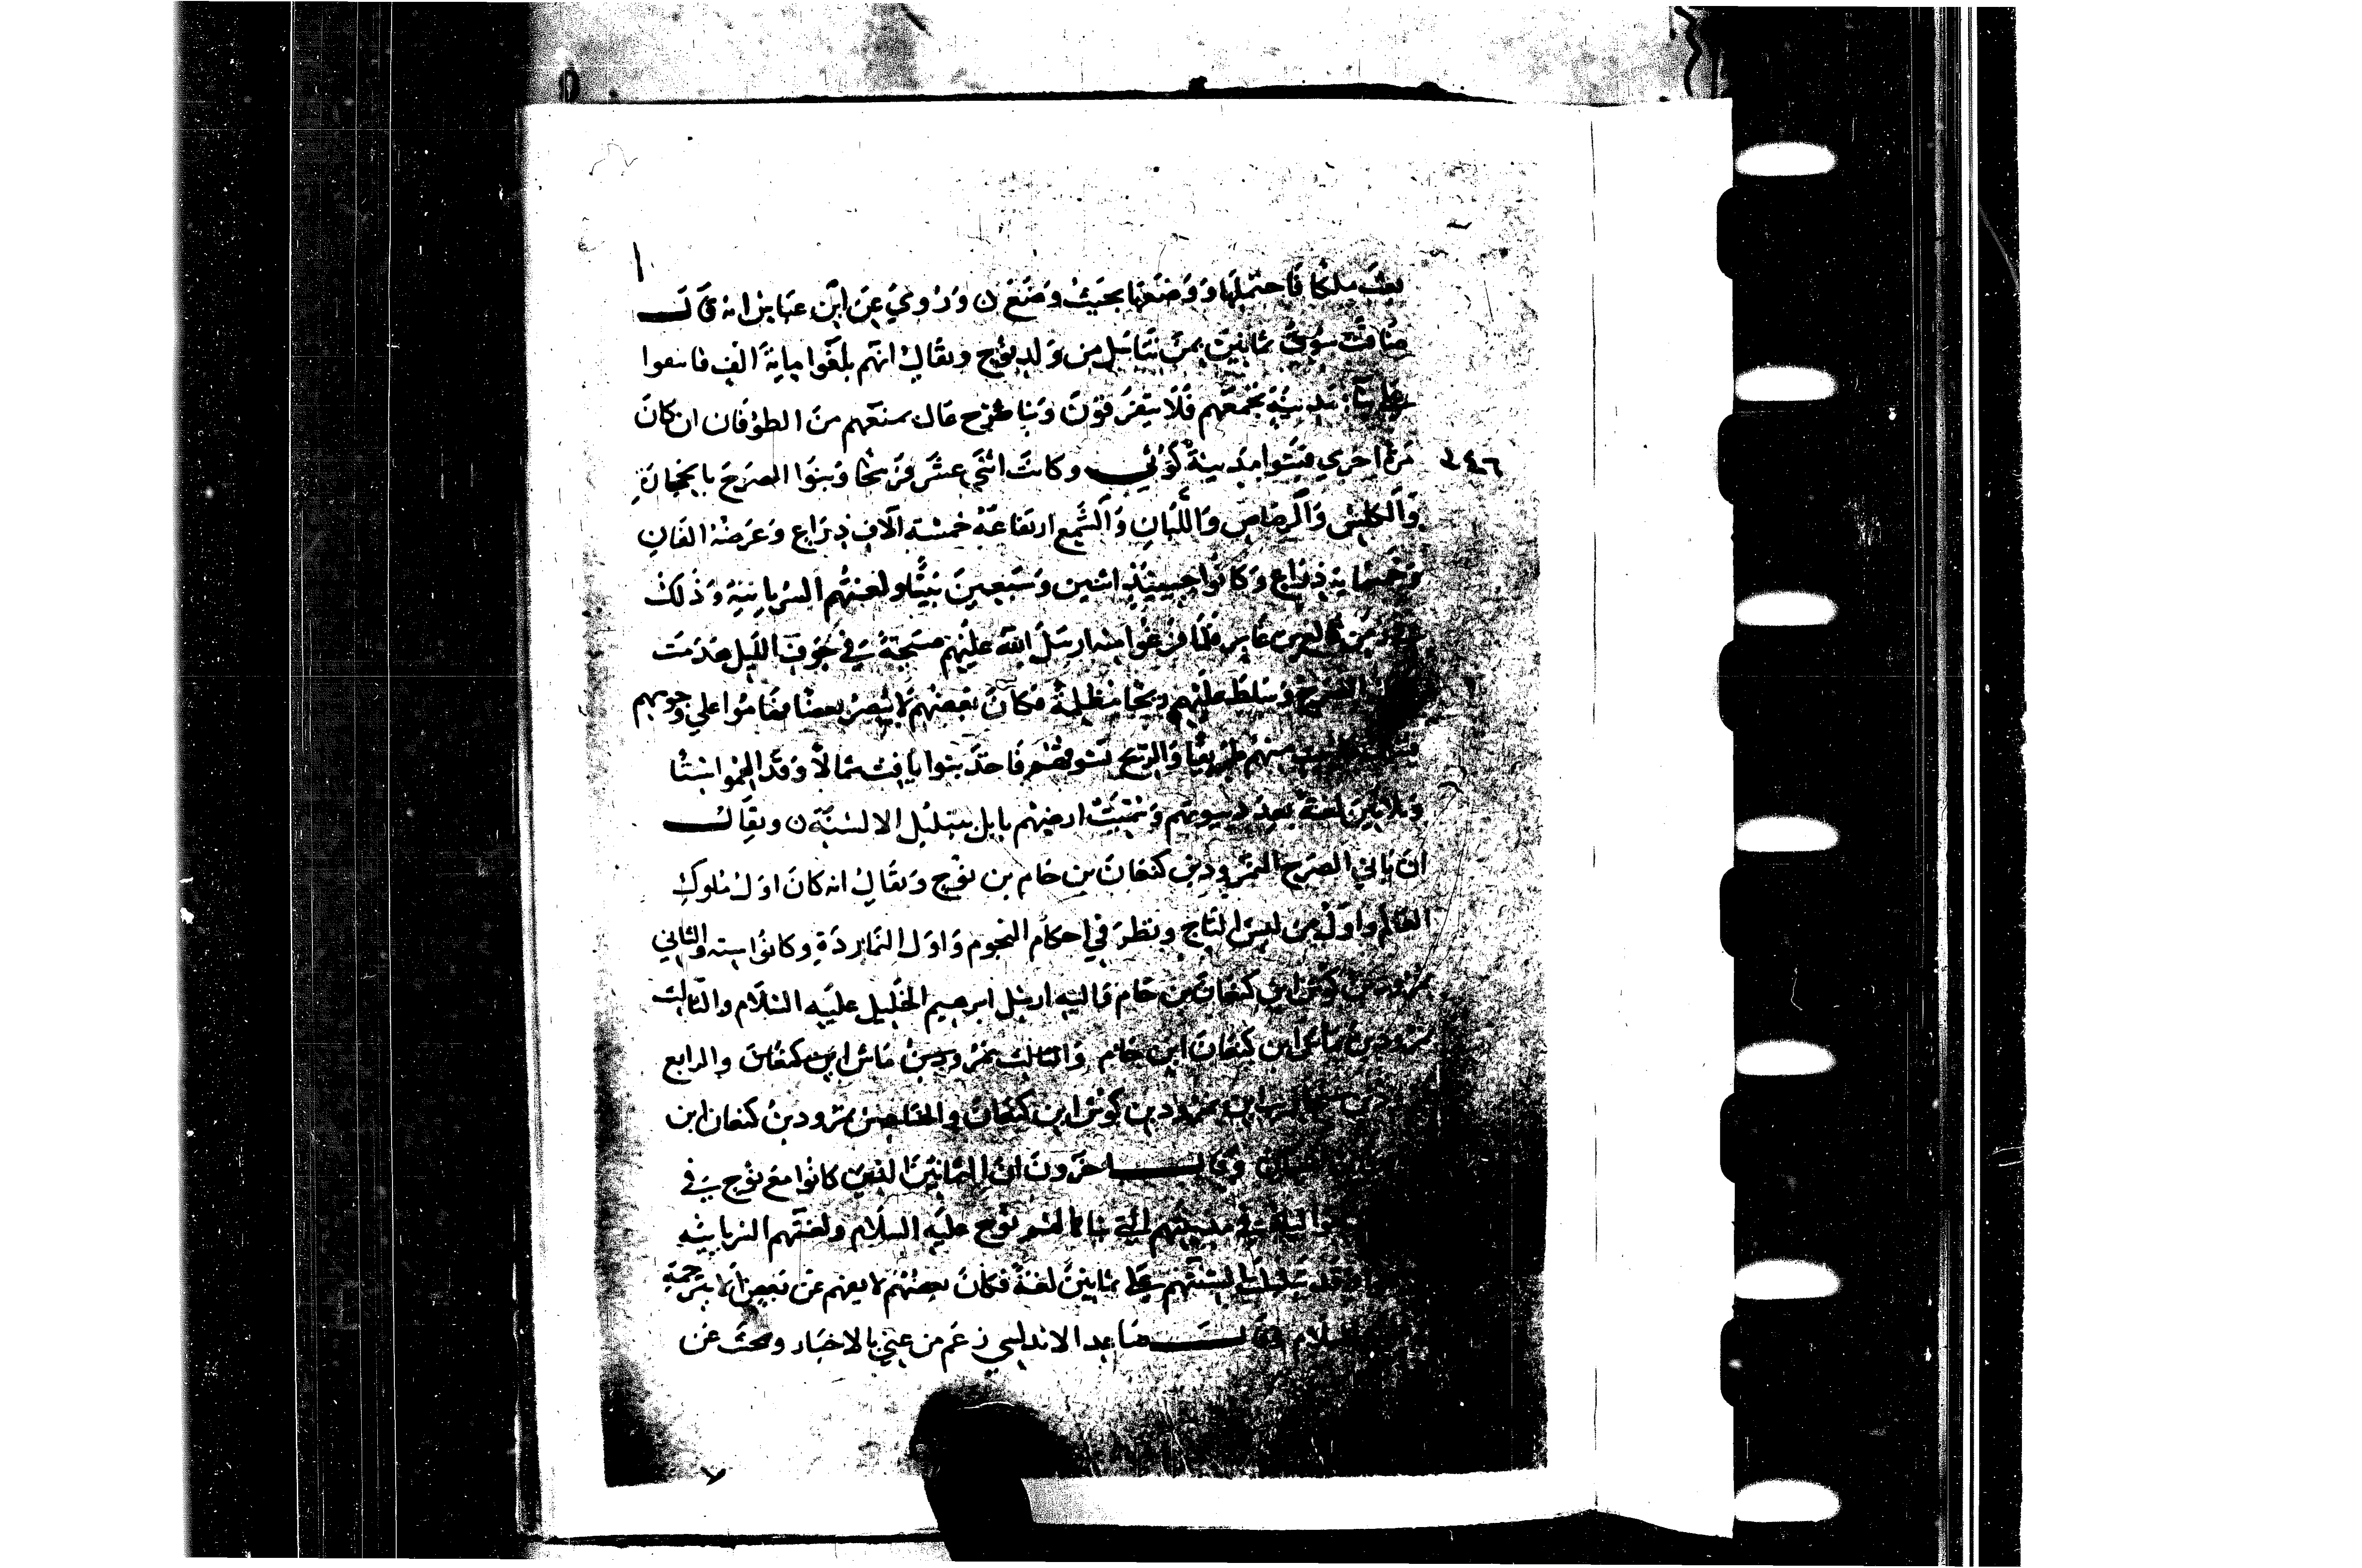 بعث ملكا فاحتملها ووضعها بحيث وضع ن وروي عن ابن عباس انه قالــ
ضاقت سوق ثمانين بمن تناسل من ولد نوح ويقال انهم بلغوا مايةَ الف فاتفقوا
على بنا مدينة تجمعهم فلا يتفرقون وبنا صرح عال يمنعهم من الطوفان ان كان
مرة اخري فبنوا مدينة كوثي وكانت اثني عشر فرسخا وبنوا الصرح بالحجارة
والكلس والرصاص واللبان والشمع ارتفاعه خمسة الاف ذراع وعرضه الفان
وخمسماية ذراع وكانوا حينيذ اثنين وسبعين بيتا ولغتهم السريانية وذلك
فلما فزعوا منه ارسل الله عليهم صيحة في جوف الليل هدمت
الصرح وسلط عليهم ريحا مظلمة فكان بعضهم لا يبصر بعضا فقاموا علي وجوههم
منهم طريقا والريح تسوقهم فاخذ بنوا يافث شمالا وقد الهموا ستا
وثلاثين لغة بعد وسميت ارضهم بابل لتبلبل الالسنة ن ويقالــ
ان باني الصرح النمرود بن كنعان بن حام بن نوح ويقال انه كان اول ملوك
العالم واول من لبس التاج ونظر في احكام النجوم واول النماردة وكانوا سته والثاني
نمرود بن كوش ابن كنعان بن حام واليه ارسل ابرهيم الخليل عليه السلام والثالث
نمرود بن ماش ابن كنعان ابن حام والثالث نمرود بن ماش ابن كنعان والرابع
ابن نمرود بن كوش ابن كنعان والخامس نمرود بن كنعان ابن
وقالــ اخرون ان الثمانين الذين كانوا مع نوح في
في مدينتهم التي بناها لهم نوح عليه السلام ولغتهم السريانيه
وقد تبلبلت السنتهم على ثمانين لغة فكان بعضهم لا يفهم عن بعض الا بترجمة
السلام وقالــ صاعد الاندلسي زعم من عني بالاخبار وبحث عن